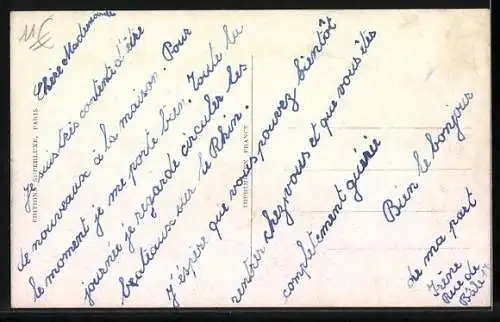 11 €
Chère Mademoiselle
Je suis très content d'être
de nouveaux à la maison. Pour
le moment je me porte bien. Toute la
journée je regarde circuler les
bateaux sur le Rhin.
J'éspère que vous pouvez bientôt
rentrer chez vous et que vous êts
complètement guérie
Bien le bonjour
de ma part
Irène
Rue de
Bâle 17
EDITIONS SUPERLUXE, PARIS
IMPRIMÉ EN FRANCE